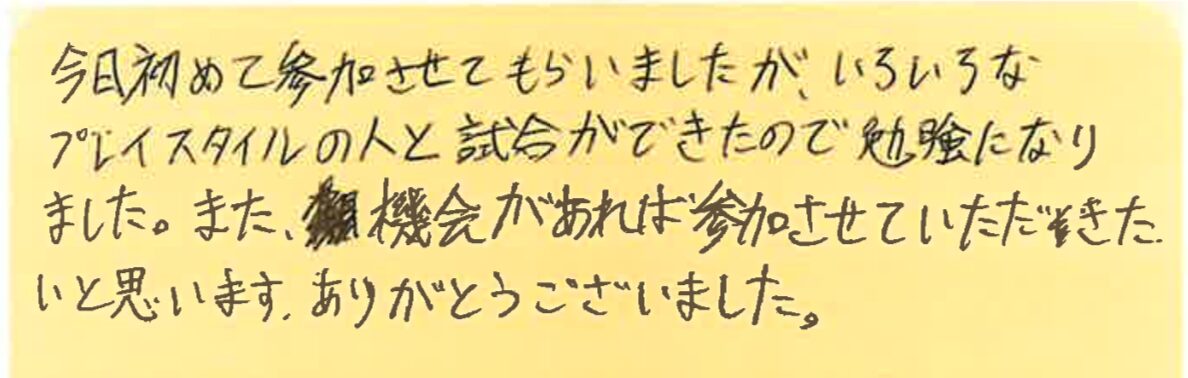 今日初めて参加させてもらいましたが、いろいろな
プレイスタイルの人と試合ができたので勉強になり
ました。また、機会があれば参加させていただきた
いと思います。ありがとうございました。